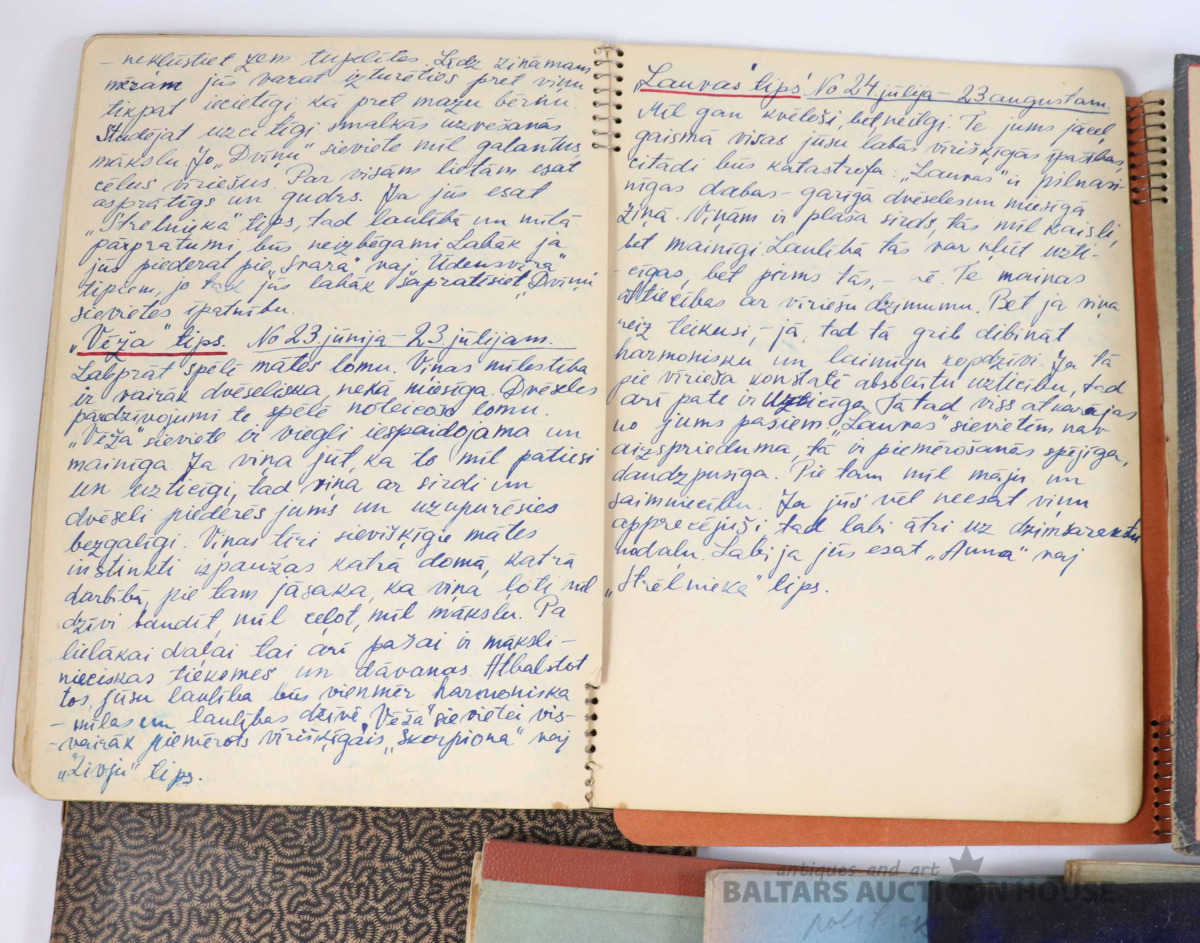 - nekļūstiet zem tupelītes. Līdz zināmam
mēram jūs varat izturēties pret viņu
tikpat iecietīgi kā pret mazu bērnu.
Studējat uzcītīgi smalkās uzvešanās
mākslu. Jo „Dvīņu" sieviete mīl galantus,
cēlus vīriešus. Par visām lietām esat
asprātīgs un gudrs. Ja jūs esat
„Strēlnieka" tips, tad laulībā un mīlā
pārpratumi būs neizbēgami. Labāk ja
jūs piederat pie „Svara" vaj „Ūdensvīra"
tipiem, jo tad jūs labāk sapratīsiet „Dvīņu"
sievietes īpatnību.
„Vēža" tips. No 23. jūnija - 23. jūlijam.
Labprāt spēlē mātes lomu. Viņas mīlestība
ir vairāk dvēseliska, nekā miesīga. Dvēseles
pārdzīvojumi te spēlē noteicošo lomu.
„Vēža sieviete ir viegli iespaidojama un
mainīga. Ja viņa jūt, ka to mīl patiesi
un uzticīgi, tad viņa ar sirdi un
dvēseli piederēs jums un uzupurēsies
bezgalīgi. Viņas tīri sievišķīgie mātes
instinkti izpaužas katrā domā, katrā
darbībā, pie tam jāsaka, ka viņa ļoti mīl
dzīvi baudīt, mīl ceļot, mīl mākslu. Pa
lielākai daļai tai arī pašai ir māksli-
nieciskas tieksmes un dāvanas. Atbalstot
tos, jūsu laulība būs vienmēr harmoniska
- mīlas un laulības dzīvē. „Vēža" sievietei vis-
- vairāk piemērots vīrišķīgais „Skorpiona" vaj
„Zivju" tips.
„Lauvas" tips No 24. jūlija - 23 augustam.
Mīl gan kvēloši, bet neilgi. Te jums jāceļ
gaismā visas jūsu labās vīrišķīgās īpašības,
citādi būs katastrofa. „Lauvas" ir pilnas-
nīgas dabas - garīgā dvēseles un miesīgā
ziņā. Viņām ir plaša sirds, tās mīl kaisli,
bet mainīgi. Laulībā tās var kļūt uzti-
cīgas, bet pirms tās, - nē. Te mainas
attiecības ar vīriešu dzimumu. Bet ja viņa
reiz teikusi, - jā, tad tā grib dibināt
harmonisku un laimīgu kopdzīvi. Ja tā
pie vīrieša konstatē absolūtu uzticību, tad
arī pate ir uzticīga. Tā tad viss atkarājas
no jums pašiem. „Lauvas" sievietēm nav
aizsprieduma, tā ir piemērošanās spējīga,
daudzpusīga. Pie tam mīl māju un
saimniecību. Ja jūs vēl neesat viņu
apprecējuši, tad labi ātri uz dzimtsarakstu
nodaļu. Labi, ja jūs esat „Auna" vaj
„Strēlnieka" tips.
antiques and art
BALTARS AUCTION HOUSE